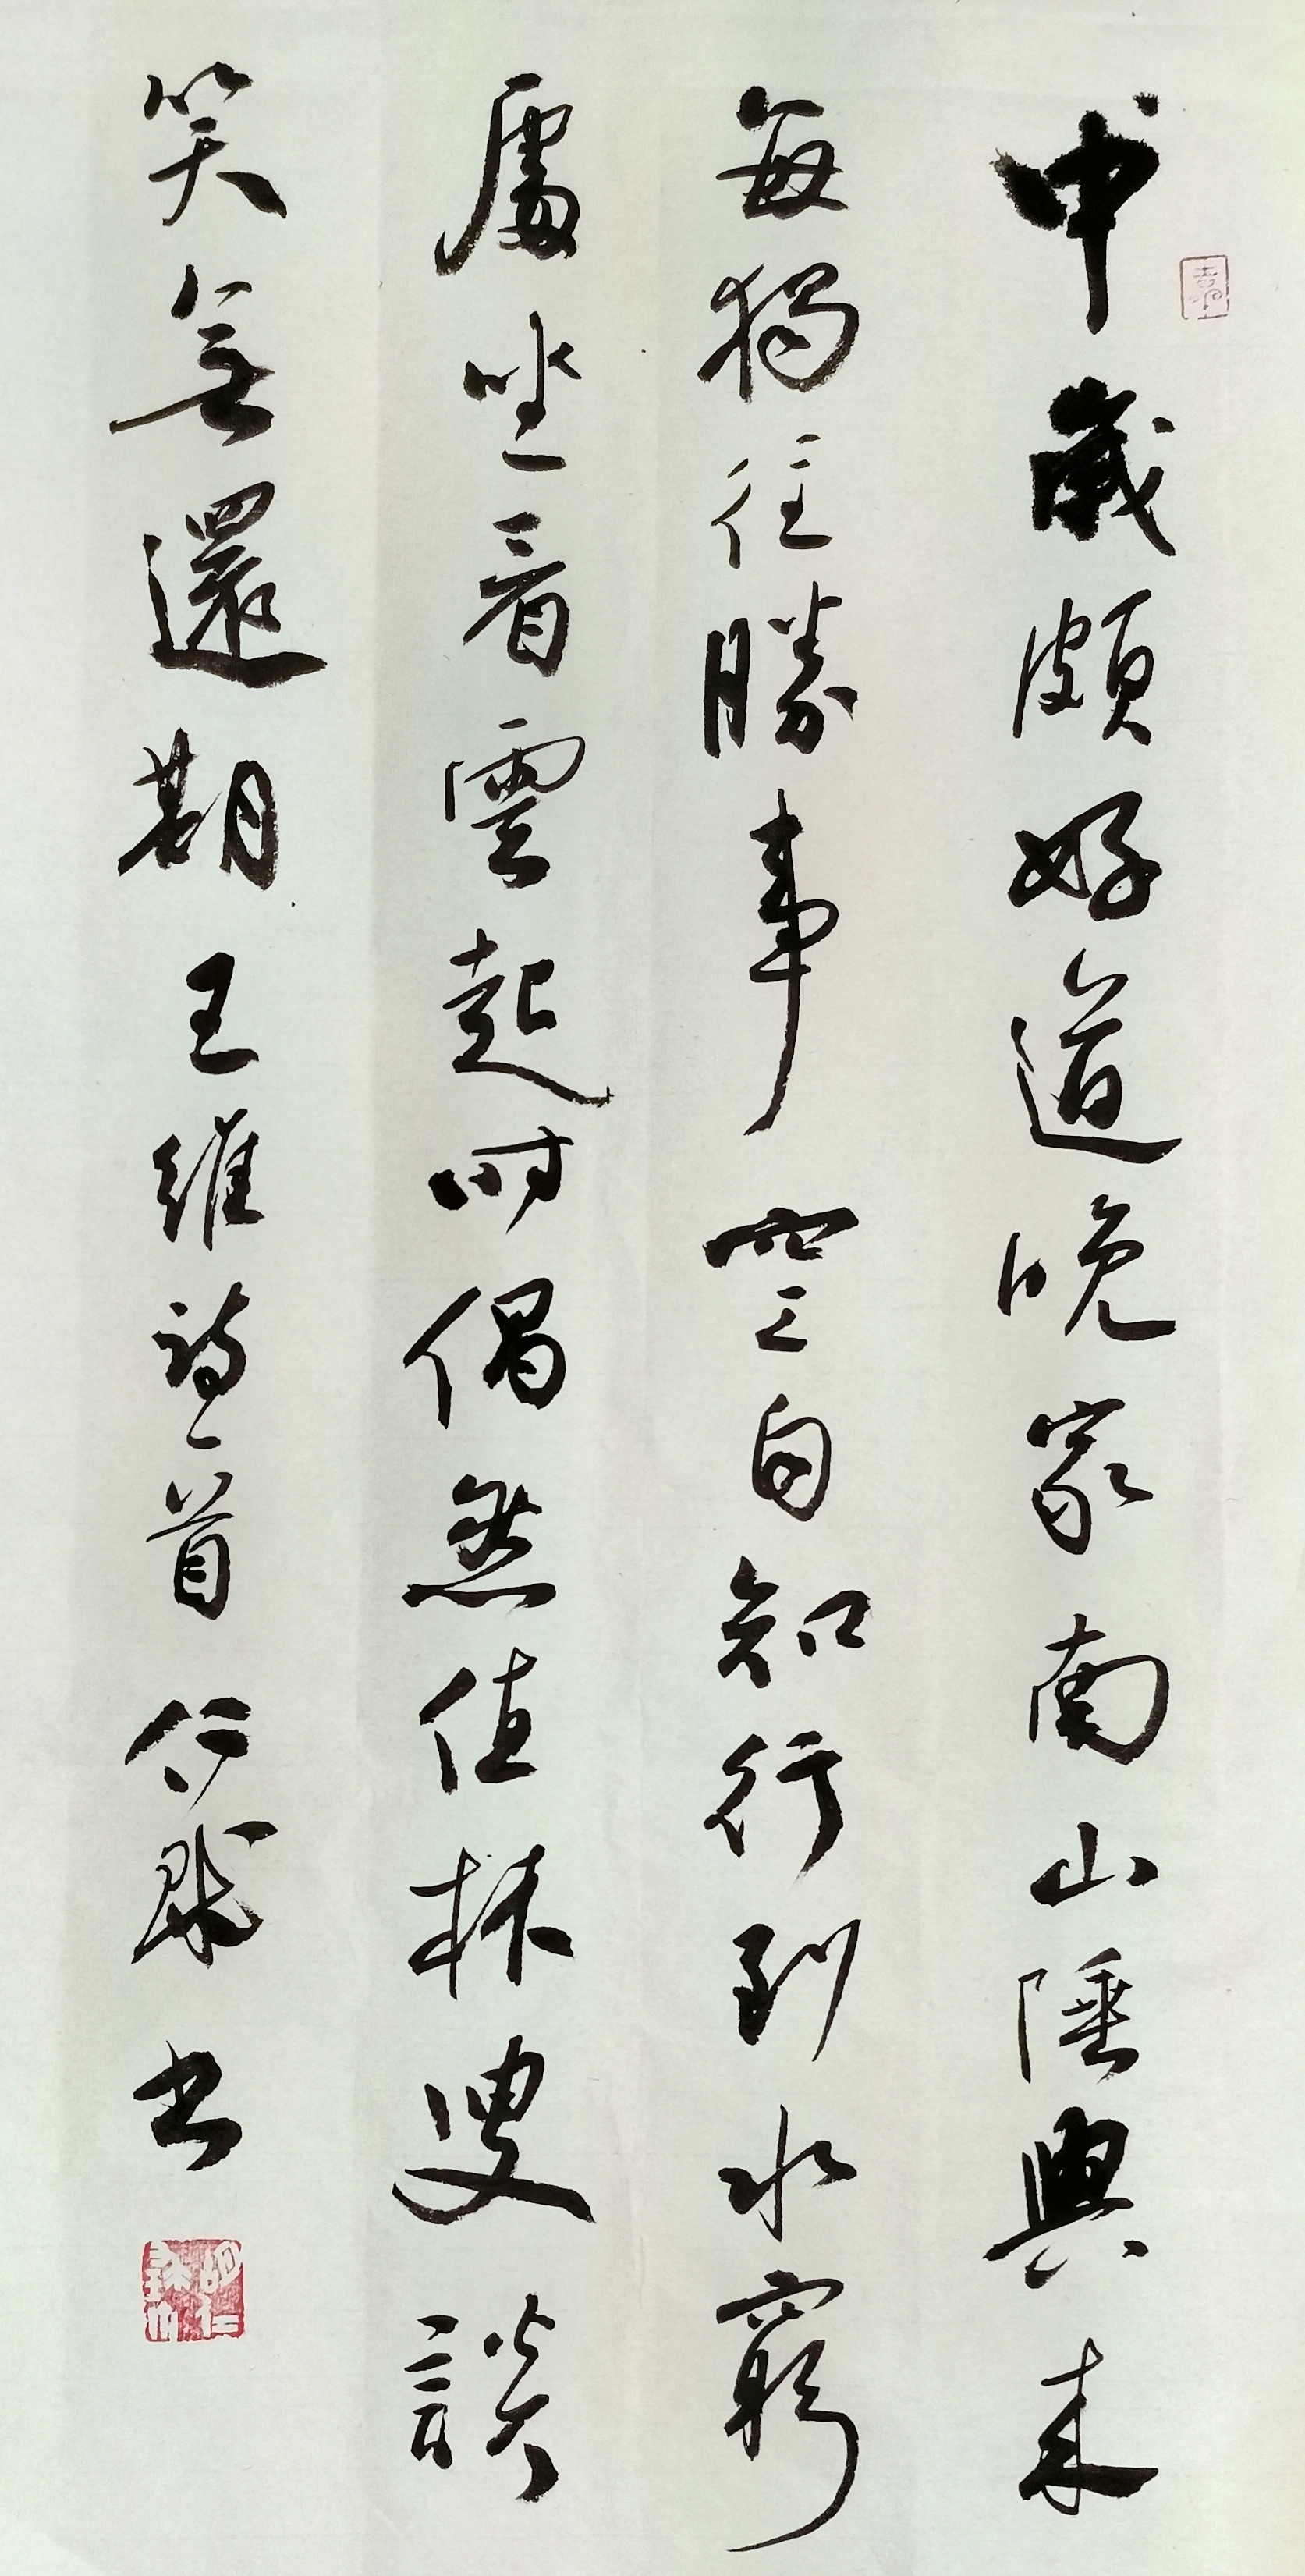 中歲頗好道晚家南山陲興來
每獨往勝事空自知行到水窮
處坐看雲起時偶然值林叟談
笑無還期 王維詩一首 仁球書